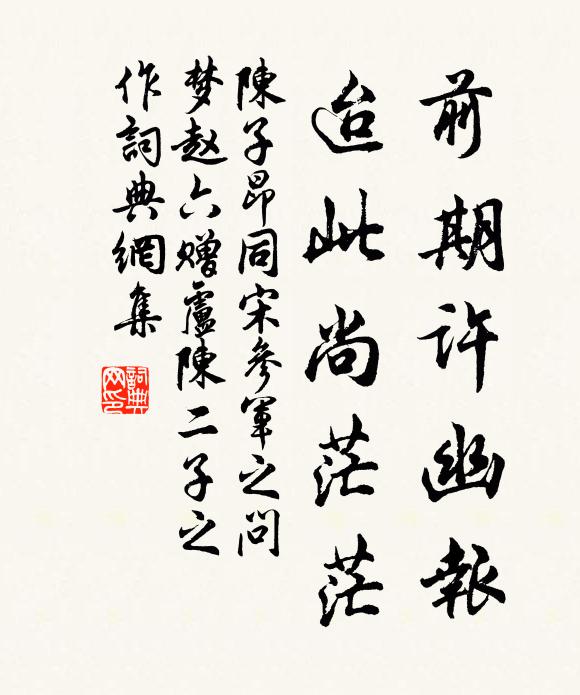 前期許幽報
迨此尚茫茫
陳子昂同宋參軍之問
梦赵六赠盧陳二子之
作詞典網集
詞典
网印